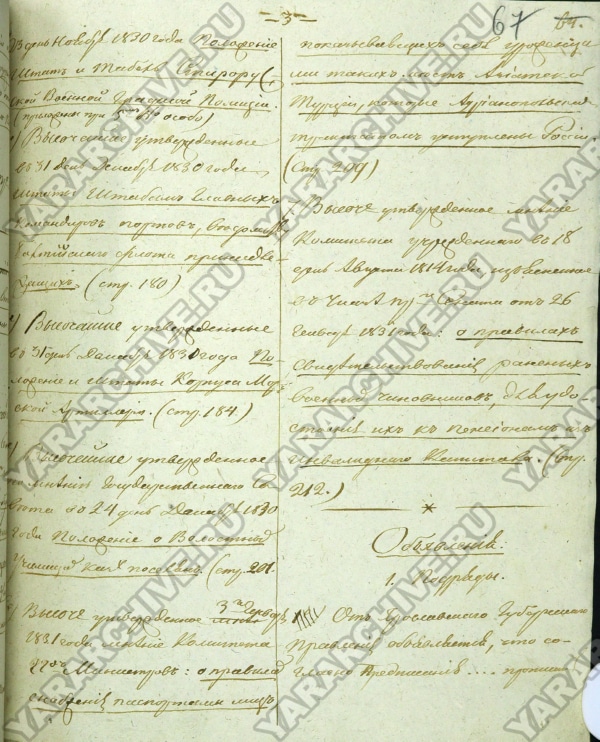 – 3 –
67
23 день Ноября 1830 года Положение
Штатъ и Табель
ской Военной Полиціи.
(приложен при особо)
Высочайше утвержденные
въ 31 день Декабря 1830 года
Штаты Штабамъ Главныхъ
Командировъ портовъ,
Балтійскаго флота
(стр. 180)
Высочайше утвержденные
въ 31 день Декабря 1830 года По-
ложеніе и Штаты Корпуса Мор-
ской Артиллеріи. (стр. 184.)
Высочайше утвержденное
мнѣніе Государственнаго Со-
вѣта въ 24 день Декабря 1830
года Положеніе о
(стр. 201.
Высоче утвержденное 3го Генваря
1831 года мнѣніе Комитета
Министровъ: о правилахъ
снабженія паспортами лицъ
себя
ми такихъ мѣстъ Азіатской
Турціи, которые Адріанопольскимъ
трактатомъ уступлены Россіи
(стр. 209)
Высоче утвержденное мнѣніе
Комитета учрежденнаго въ 18
день Августа 1814 года,
отъ 26
Генваря 1831 года: о правилахъ
свидѣтельствованія раненыхъ
военныхъ чиновниковъ, для удо-
стоенія ихъ къ пенсіонамъ изъ
инвалиднаго Капитала. (стр.
212.)
Объявленія.
1. Подряды.
Отъ Ярославскаго Губернскаго
Правленія объявляется, что со-
гласно Предписанія .... пропис
YARARCHIVE.RU